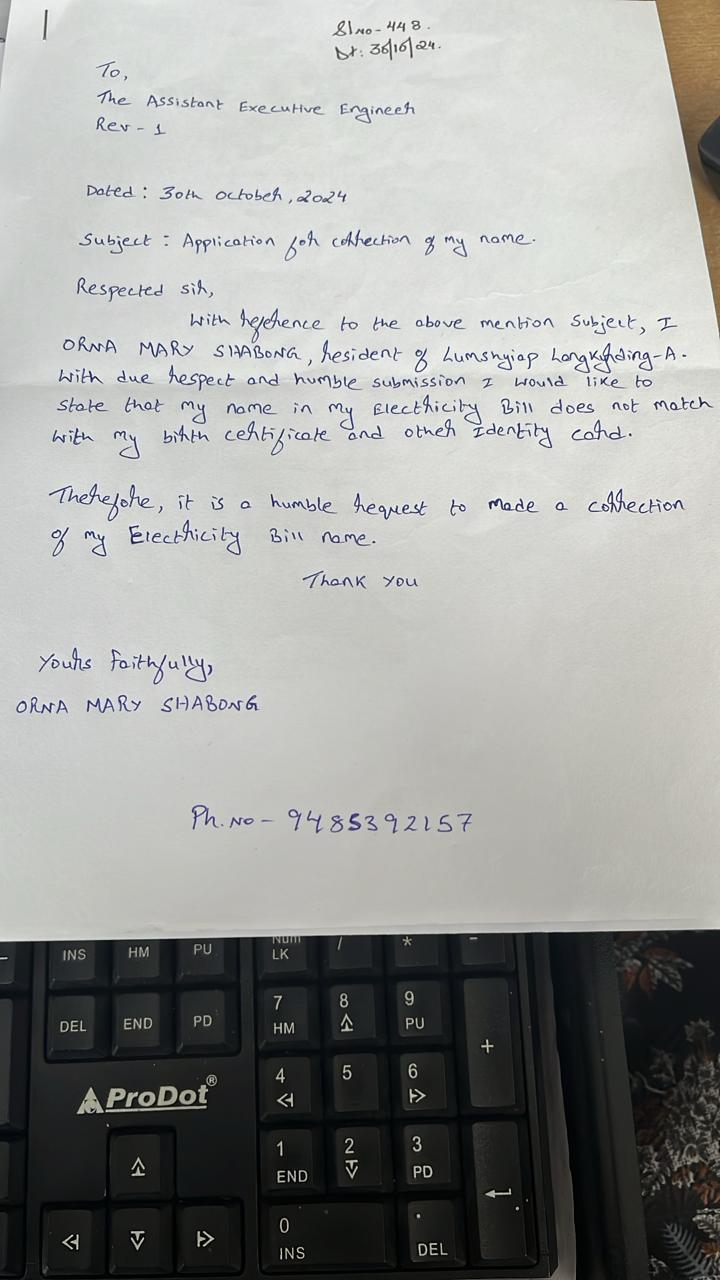 Sl No - 448.
Dt: 30/10/24.
To,
The Assistant Executive Engineer
Rev - 1
Dated : 30th October, 2024
Subject : Application for correction of my name.
Respected sir,
With reference to the above mention Subject, I
ORNA MARY SHABONG, resident of Lumshyiap Langkyrding-A.
With due respect and humble submission I would like to
state that my name in my Electricity Bill does not match
with my birth certificate and other Identity card.
Therefore, it is a humble request to made a correction
of my Electricity Bill name.
Thank you
Yours faithfully,
ORNA MARY SHABONG
Ph. No - 9485392157
INS HM PU Num LK / * -
DEL END PD 7 HM 8 9 PU +
ProDot®
4 5 6
1 END 2 3 PD
0 INS . DEL